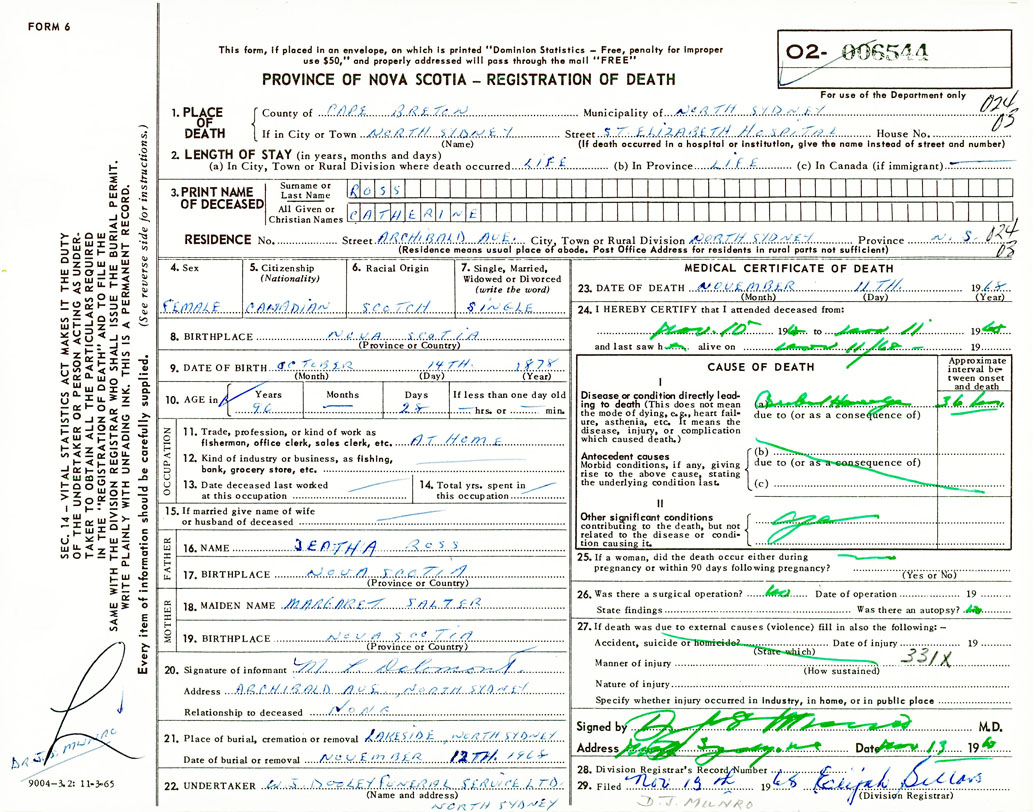 FORM 6
This form, if placed in an envelope, on which is printed "Dominion Statistics – Free, penalty for improper
use $50," and properly addressed will pass through the mail "FREE"
PROVINCE OF NOVA SCOTIA – REGISTRATION OF DEATH
O2- 006544
For use of the Department only
024
03
1. PLACE OF DEATH
County of CAPE BRETON Municipality of NORTH SYDNEY
If in City or Town NORTH SYDNEY Street ST ELIZABETH HOSPITAL House No.
(Name) (If death occurred in a hospital or institution, give the name instead of street and number)
2. LENGTH OF STAY (in years, months and days)
(a) In City, Town or Rural Division where death occurred LIFE (b) In Province LIFE (c) In Canada (if immigrant)
3. PRINT NAME OF DECEASED
Surname or Last Name ROSS
All Given or Christian Names CATHERINE
RESIDENCE No. Street ARCHIBALD AVE. City, Town or Rural Division NORTH SYDNEY Province N. S.
024
03
(Residence means usual place of abode. Post Office Address for residents in rural parts not sufficient)
4. Sex
FEMALE
5. Citizenship
(Nationality)
CANADIAN
6. Racial Origin
SCOTCH
7. Single, Married,
Widowed or Divorced
(write the word)
SINGLE
8. BIRTHPLACE NOVA SCOTIA
(Province or Country)
9. DATE OF BIRTH OCTOBER 14TH 1878
(Month) (Day) (Year)
10. AGE in Years Months Days If less than one day old
90 — 28 hrs. or min.
OCCUPATION
11. Trade, profession, or kind of work as
fisherman, office clerk, sales clerk, etc. AT HOME
12. Kind of industry or business, as fishing,
bank, grocery store, etc.
13. Date deceased last worked
at this occupation
14. Total yrs. spent in
this occupation
15. If married give name of wife
or husband of deceased
FATHER
16. NAME ROSS
17. BIRTHPLACE NOVA SCOTIA
(Province or Country)
MOTHER
18. MAIDEN NAME MARGARET SALTER
19. BIRTHPLACE NOVA SCOTIA
(Province or Country)
20. Signature of informant M
Address ARCHIBALD AVE., NORTH SYDNEY
Relationship to deceased NONE
21. Place of burial, cremation or removal LAKESIDE, NORTH SYDNEY
Date of burial or removal NOVEMBER 12TH. 1968
22. UNDERTAKER W.S. DOOLEY FUNERAL SERVICE LTD.
(Name and address) NORTH SYDNEY
MEDICAL CERTIFICATE OF DEATH
23. DATE OF DEATH NOVEMBER 11TH. 1968
(Month) (Day) (Year)
24. I HEREBY CERTIFY that I attended deceased from:
Nov. 10 196 to 11 196
and last saw h alive on 11/68 19
CAUSE OF DEATH
Approximate interval between onset and death
I
Disease or condition directly leading
to death (This does not mean
the mode of dying, e.g., heart failure,
asthenia, etc. It means the
disease, injury, or complication
which caused death.)
(a)
due to (or as a consequence of)
36 hrs
Antecedent causes
Morbid conditions, if any, giving
rise to the above cause, stating
the underlying condition last.
(b)
due to (or as a consequence of)
(c)
II
Other significant conditions
contributing to the death, but not
related to the disease or condition
causing it.
25. If a woman, did the death occur either during
pregnancy or within 90 days following pregnancy?
(Yes or No)
26. Was there a surgical operation? Date of operation 19
State findings Was there an autopsy? No
27. If death was due to external causes (violence) fill in also the following: –
Accident, suicide or homicide? Date of injury 19
(State which)
331X
Manner of injury
(How sustained)
Nature of injury
Specify whether injury occurred in Industry, in home, or in public place
Signed by Munro M.D.
Address Date Nov 13 196
28. Division Registrar's Record Number
29. Filed Nov 19 1968 Elijah
(Division Registrar)
D. J. MUNRO
SEC. 14 – VITAL STATISTICS ACT MAKES IT THE DUTY
OF THE UNDERTAKER OR PERSON ACTING AS UNDER-
TAKER TO OBTAIN ALL THE PARTICULARS REQUIRED
IN THE "REGISTRATION OF DEATH" AND TO FILE THE
SAME WITH THE DIVISION REGISTRAR WHO SHALL ISSUE THE BURIAL PERMIT.
WRITE PLAINLY WITH UNFADING INK. THIS IS A PERMANENT RECORD.
Every item of information should be carefully supplied. (See reverse side for instructions.)
MUNRO
9004-3.2: 11-3-65